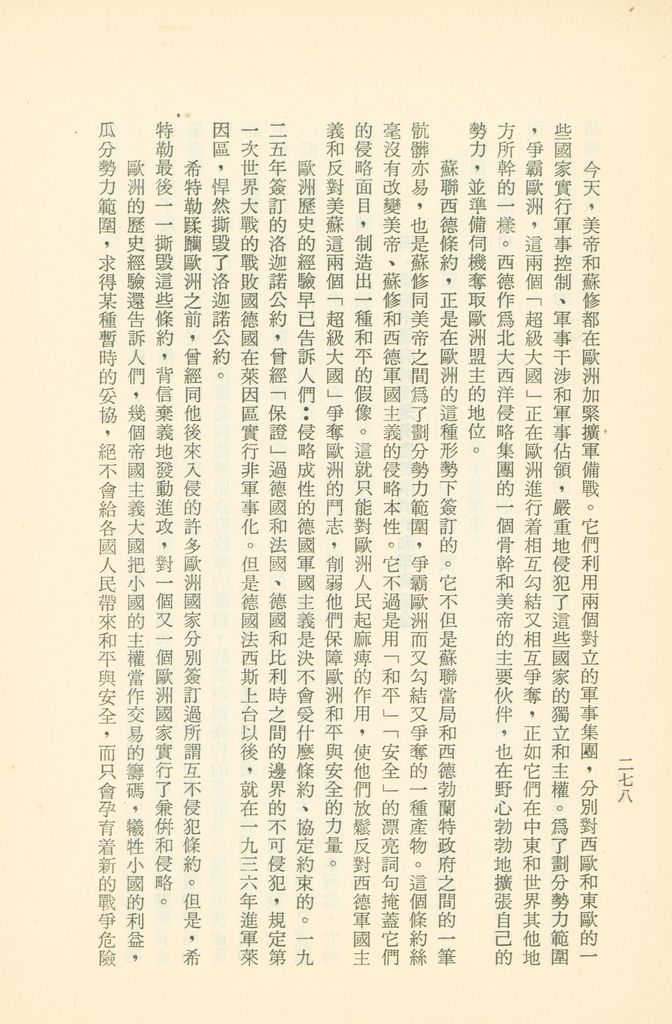 二七八
今天，美帝和蘇修都在歐洲加緊擴軍備戰。它們利用兩個對立的軍事集團，分別對西歐和東歐的一
些國家實行軍事控制、軍事干涉和軍事佔領，嚴重地侵犯了這些國家的獨立和主權。爲了劃分勢力範圍
，爭霸歐洲，這兩個「超級大國」正在歐洲進行着相互勾結又相互爭奪，正如它們在中東和世界其他地
方所幹的一樣。西德作爲北大西洋侵略集團的一個骨幹和美帝的主要伙伴，也在野心勃勃地擴張自己的
勢力，並準備伺機奪取歐洲盟主的地位。
蘇聯西德條約，正是在歐洲的這種形勢下簽訂的。它不但是蘇聯當局和西德勃蘭特政府之間的一筆
骯髒亦易，也是蘇修同美帝之間爲了劃分勢力範圍，爭霸歐洲而又勾結又爭奪的一種產物。這個條約絲
毫沒有改變美帝、蘇修和西德軍國主義的侵略本性。它不過是用「和平」「安全」的漂亮詞句掩蓋它們
的侵略面目，制造出一種和平的假像。這就只能對歐洲人民起麻痺的作用，使他們放鬆反對西德軍國主
義和反對美蘇這兩個「超級大國」爭奪歐洲的鬥志，削弱他們保障歐洲和平與安全的力量。
歐洲歷史的經驗早已告訴人們：侵略成性的德國軍國主義是決不會受什麼條約、協定約束的。一九
二五年簽訂的洛迦諾公約，曾經「保證」過德國和法國、德國和比利時之間的邊界的不可侵犯，規定第
一次世界大戰的戰敗國德國在萊因區實行非軍事化。但是德國法西斯上台以後，就在一九三六年進軍萊
因區，悍然撕毀了洛迦諾公約。
希特勒蹂躪歐洲之前，曾經同他後來入侵的許多歐洲國家分別簽訂過所謂互不侵犯條約。但是，希
特勒最後一一撕毀這些條約，背信棄義地發動進攻，對一個又一個歐洲國家實行了兼併和侵略。
歐洲的歷史經驗還告訴人們，幾個帝國主義大國把小國的主權當作交易的籌碼，犧牲小國的利益，
瓜分勢力範圍，求得某種暫時的妥協，絕不會給各國人民帶來和平與安全，而只會孕育着新的戰爭危險